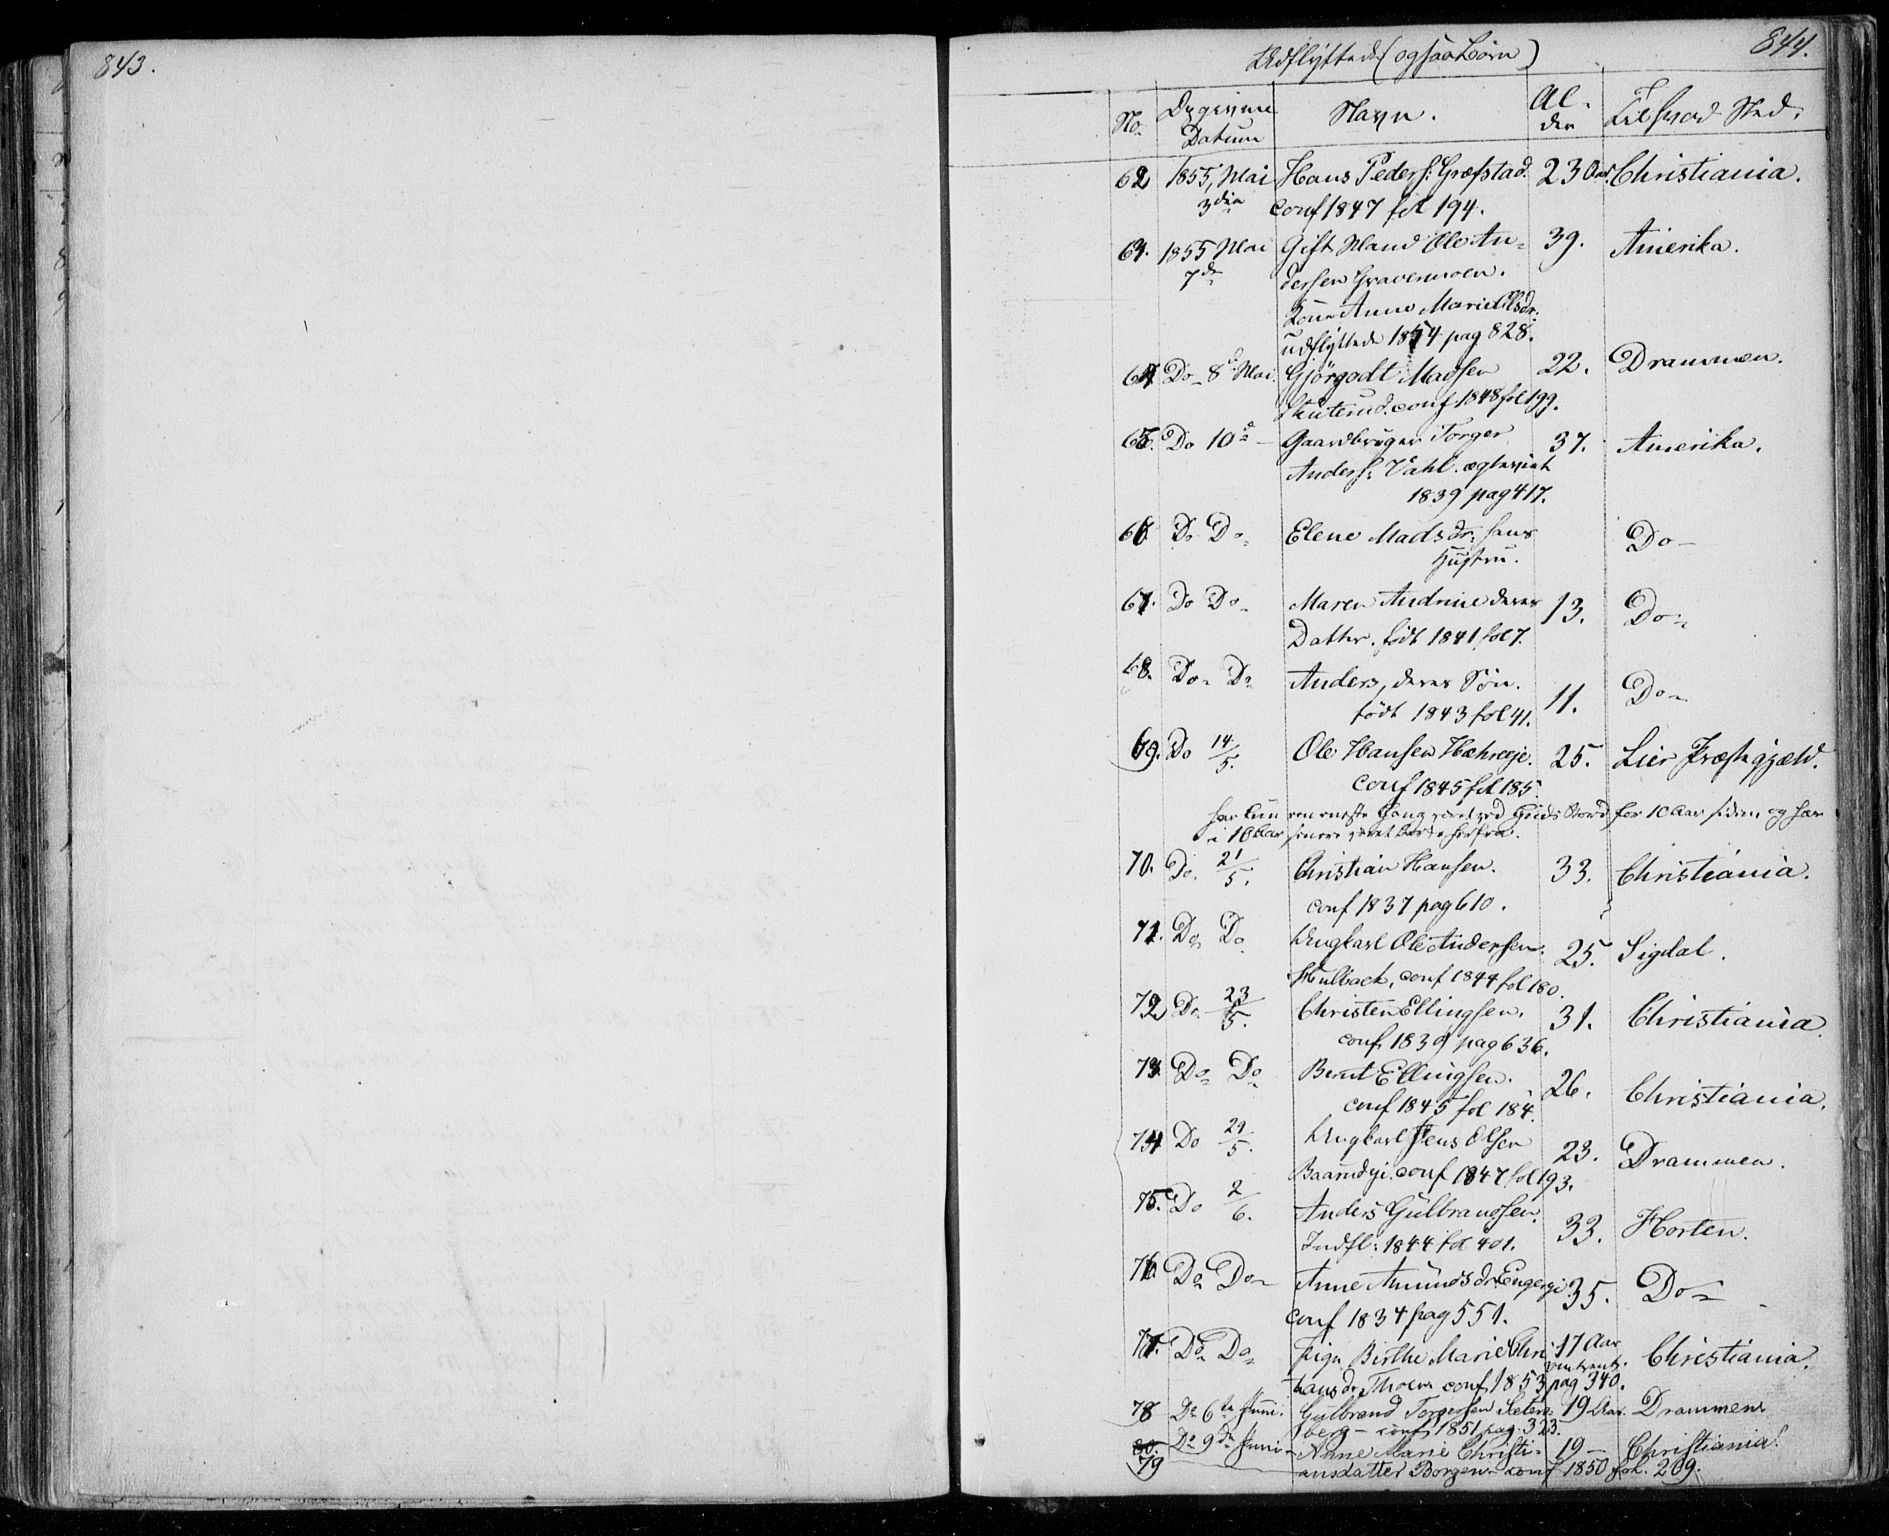 843.
844.
Udflyttede (ogsaa børn)
No. Opgivne Datum Navn. Al- der Til hvad Sted.
62 1855, Mai 3die Hans Peders: Græfstad. 23 Aar. Christiania.
conf 1847 fol 194.
63. 1855 Mai 7de Gift Mand Ole An- 39. Amerika.
dersen Gravermoen.
Kone Anne Marie Olsdr.
udflyttede 1854 pag 828.
64 Do 8d Mai Gjörgodt Madsen 22. Drammen.
Skuterud. conf 1848 fol 199.
65. Do 10d Gaardbruger Torger 37. Amerika.
Anders: Vahl. ægteviet
1839 pag 417.
66 Do Do Elene Madsdr: hans Do
Hustru.
67. Do Do Maren Andrine deres 13. Do
Datter. födt 1841 fol 7.
68. Do Do Anders, deres Sön. 11. Do
födt 1843 fol 41.
69. Do 14/5. Ole Hansen 25. Lier Præstegjæld.
conf 1845 fol 185.
har kun een eneste Gang været ved Guds Bord for 10 Aar siden og har
i 10 Aar været borte herfra.
70. Do 21/5. Christian Hansen. 33. Christiania.
conf 1837 pag 610.
71. Do Do Ungkarl Ole Andersen 25. Sigdal.
conf 1844 fol 180.
72 Do 23/5. Christen Ellingsen. 31. Christiania
conf 1839 pag 636.
73. Do Do Bernt Ellingsen. 26. Christiania.
conf 1845 fol 184.
74 Do 29/5. Ungkarl Jens Olsen 23. Drammen.
conf 1847 fol 193.
75. Do 2/6. Anders Gulbrandsen. 33. Horten.
Indfl: 1844 fol 401.
76. Do Do Anne Amundsdr. 35. Do
conf 1834 pag 551.
77. Do Do Pige Birthe Marie Chri- 17 Aar Christiania.
omtrent.
tiansdr. Thoen conf 1853 pag 340.
78 Do 6te Juni. Gulbrand Torgersen Seters- 19 Aar. Drammen
berg - conf 1851 pag. 323.
80. 79 Do 9de Juni Anne Marie Christi- 19 - Christiania.
ansdatter Borgen - conf 1850 fol. 209.